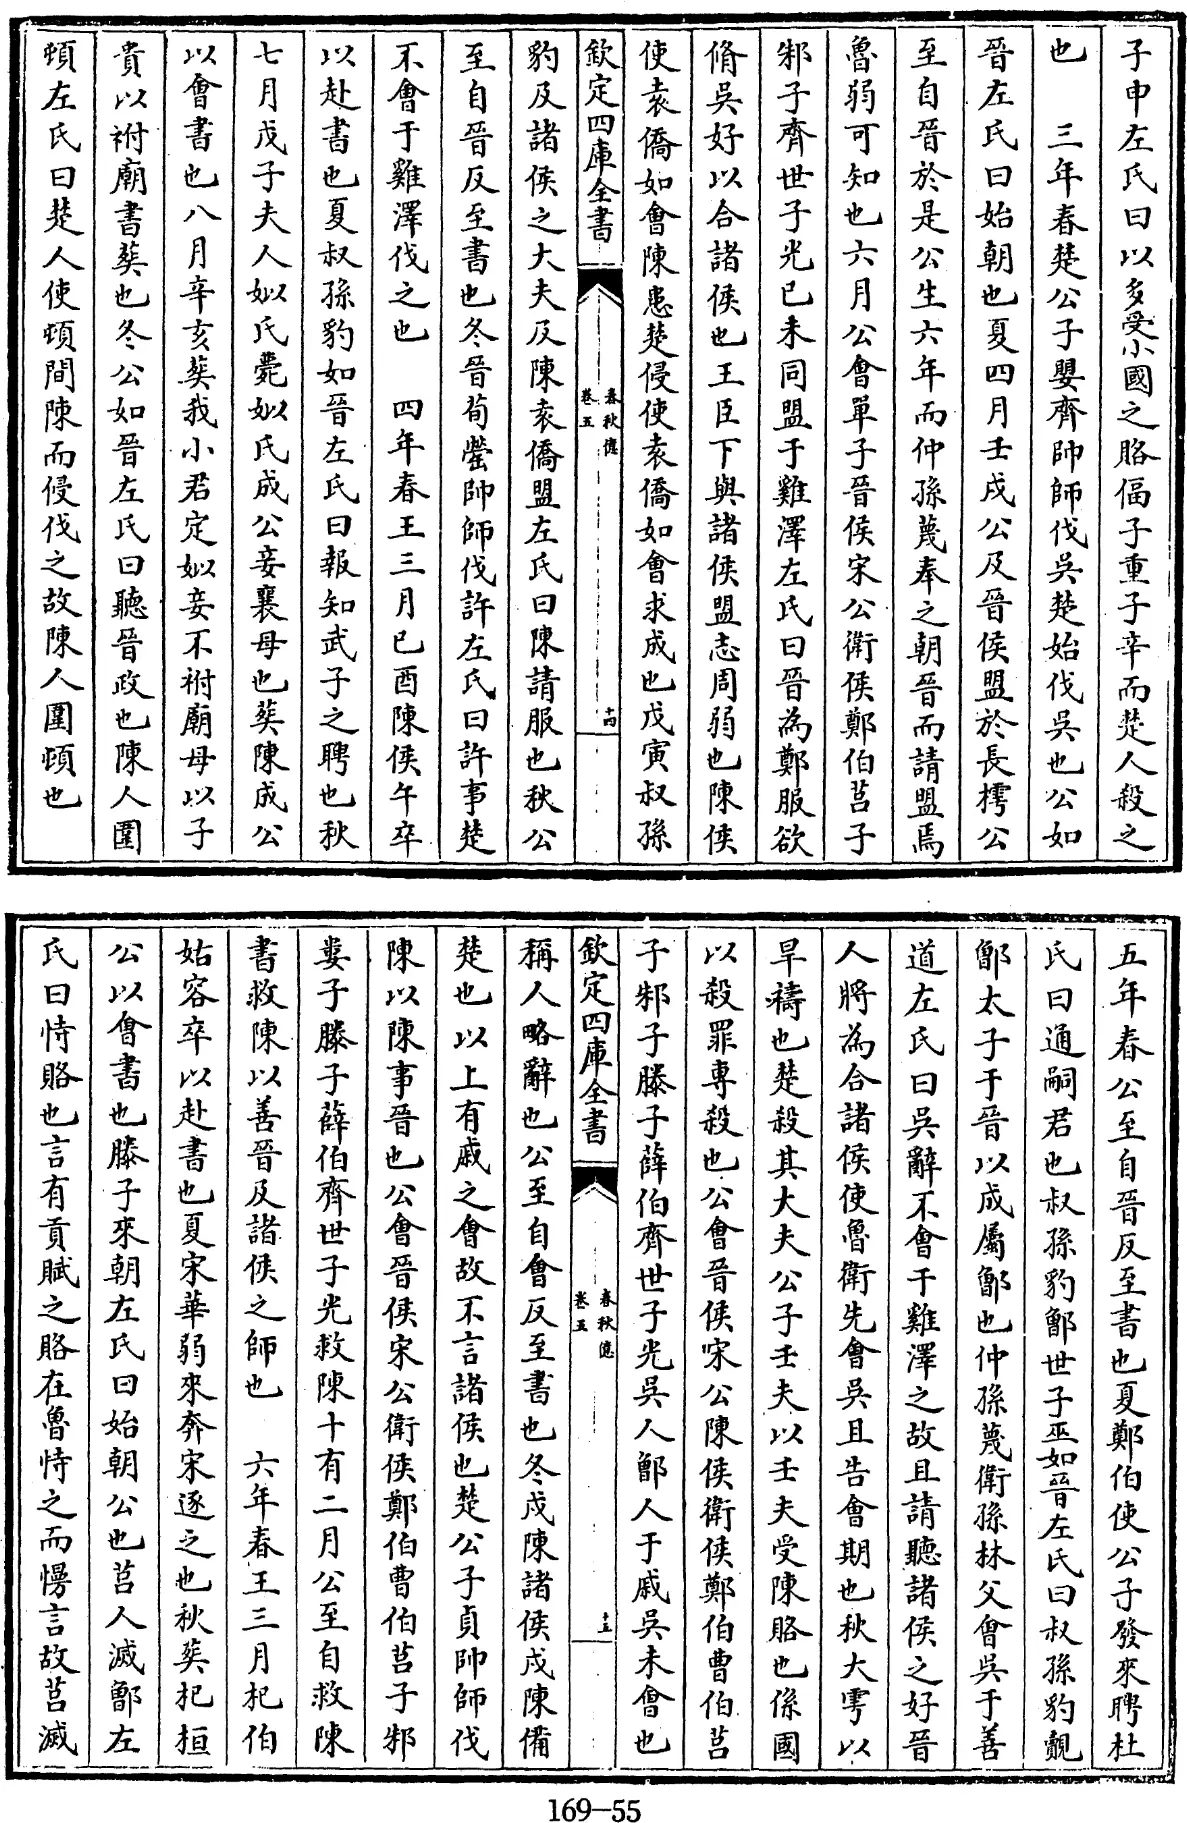 子申左氏曰以多受小國之賂偪子重子辛而楚人殺之
也　三年春楚公子嬰齊帥師伐吳楚始伐吳也公如
晉左氏曰始朝也夏四月壬戌公及晉侯盟於長樗公
至自晉於是公生六年而仲孫蔑奉之朝晉而請盟焉
魯弱可知也六月公會單子晉侯宋公衛侯鄭伯莒子
邾子齊世子光已未同盟于雞澤左氏曰晉為鄭服欲
脩吳好以合諸侯也王臣下與諸侯盟志周弱也陳侯
使袁僑如會陳患楚侵使袁僑如會求成也戊寅叔孫
欽定四庫全書
春秋億
卷五
十四
豹及諸侯之大夫及陳袁僑盟左氏曰陳請服也秋公
至自晉反至書也冬晉荀罃帥師伐許左氏曰許事楚
不會于雞澤伐之也　四年春王三月已酉陳侯午卒
以赴書也夏叔孫豹如晉左氏曰報知武子之聘也秋
七月戊子夫人姒氏薨姒氏成公妾襄母也葬陳成公
以會書也八月辛亥葬我小君定姒妾不祔廟母以子
貴以祔廟書葬也冬公如晉左氏曰聽晉政也陳人圍
頓左氏曰楚人使頓間陳而侵伐之故陳人圍頓也
五年春公至自晉反至書也夏鄭伯使公子發來聘杜
氏曰通嗣君也叔孫豹鄫世子巫如晉左氏曰叔孫豹覿
鄫太子于晉以成屬鄫也仲孫蔑衛孫林父會吳于善
道左氏曰吳辭不會于雞澤之故且請聽諸侯之好晉
人將為合諸侯使魯衛先會吳且告會期也秋大雩以
旱禱也楚殺其大夫公子壬夫以壬夫受陳賂也係國
以殺罪專殺也公會晉侯宋公陳侯衛侯鄭伯曹伯莒
子邾子滕子薛伯齊世子光吳人鄫人于戚吳未會也
欽定四庫全書
春秋億
卷五
十五
稱人略辭也公至自會反至書也冬戍陳諸侯戍陳備
楚也以上有戚之會故不言諸侯也楚公子貞帥師伐
陳以陳事晉也公會晉侯宋公衛侯鄭伯曹伯莒子邾
婁子滕子薛伯齊世子光救陳十有二月公至自救陳
書救陳以善晉及諸侯之師也　六年春王三月杞伯
姑容卒以赴書也夏宋華弱來奔宋逐之也秋葬杞桓
公以會書也滕子來朝左氏曰始朝公也莒人滅鄫左
氏曰恃賂也言有貢賦之賂在魯恃之而慢言故莒滅
169-55